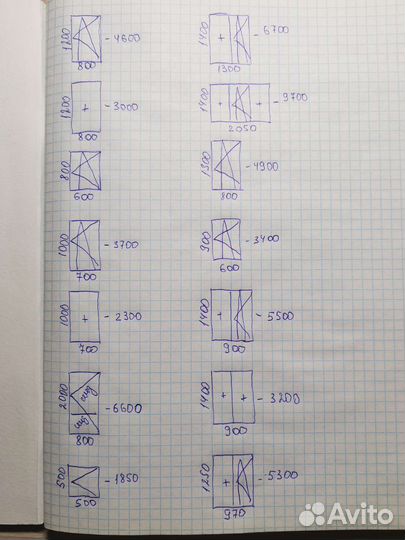 1200 - 4600
800
1200 + - 3000
800
800 - 4200
600
1000 - 3700
700
1000 + - 2300
700
2000 - 6600
800
500 - 1850
500
1400 + - 6700
1300
1400 + + - 9700
2050
1300 - 4900
800
900 - 3400
600
1400 + - 5500
900
1400 + + - 3200
900
1250 + - 5300
970
Avito